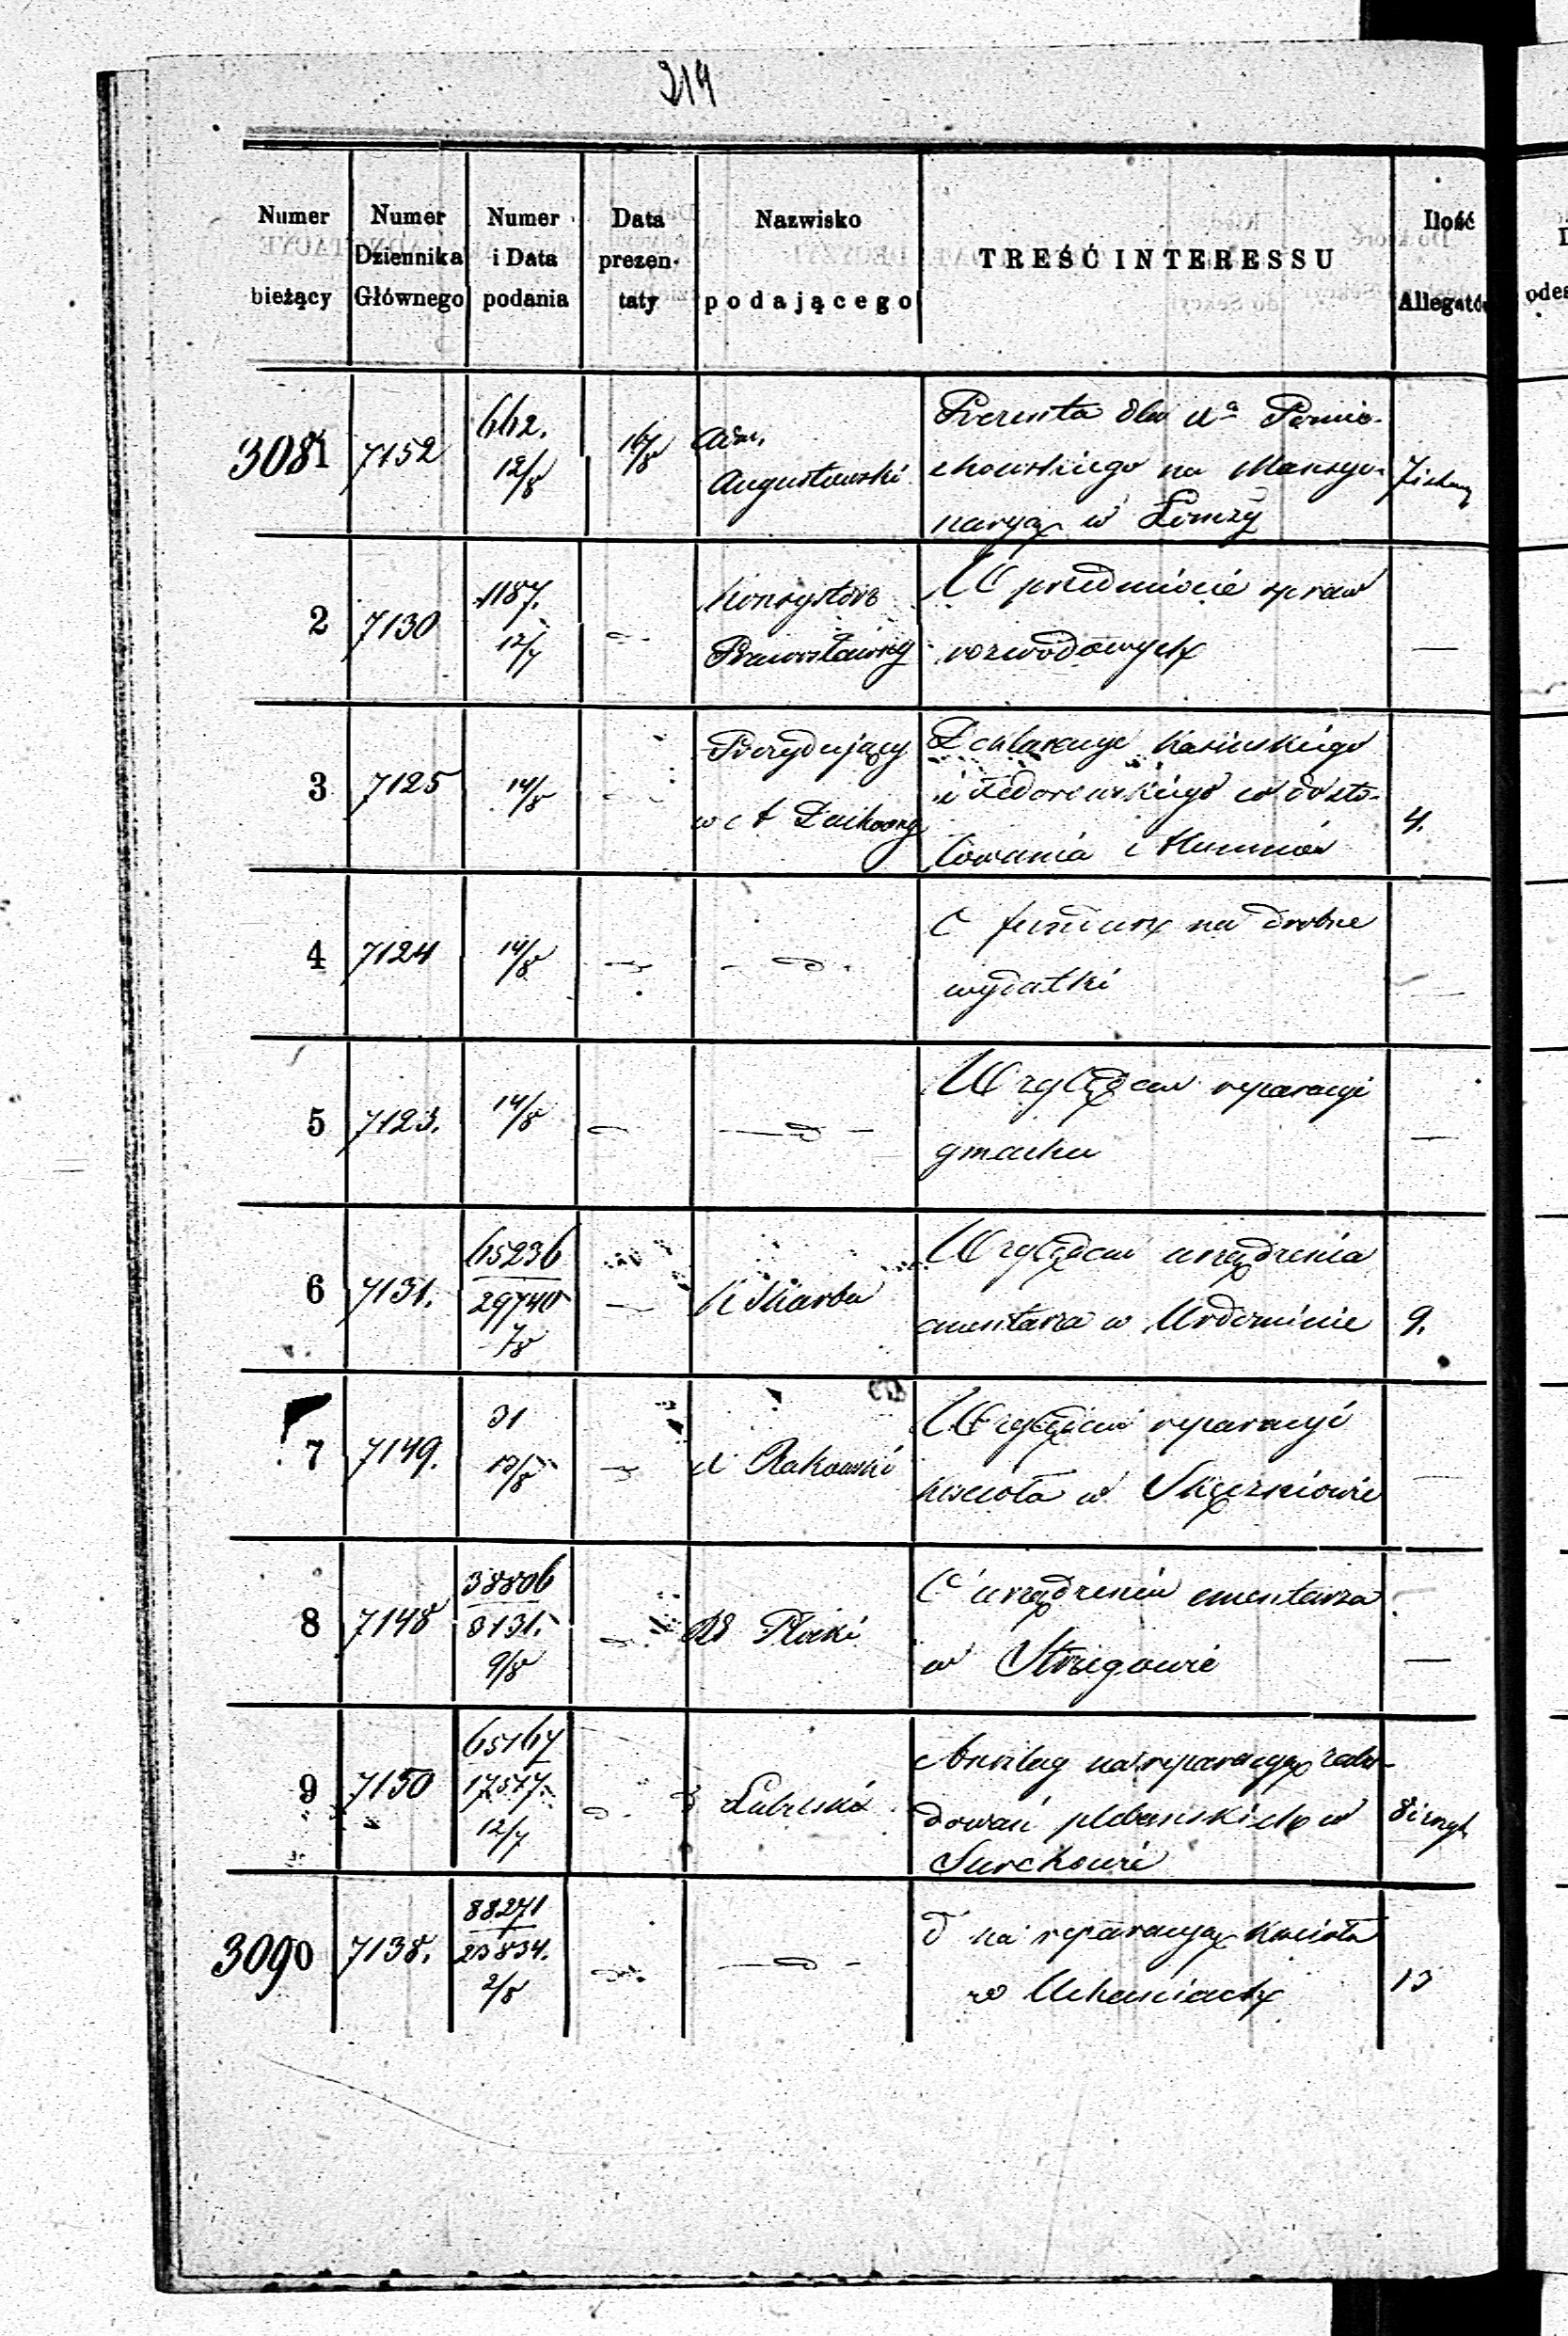 214
Numer bieżący
Numer Dziennika Głównego
Numer i Data podania
Data prezentaty
Nazwisko podającego
TREŚĆ INTERESSU
Ilość Allegató
3081 7152 662. 12/8 16/8 Adm. Augustowski
Prezenta dla
chowskiego na Mansyo-
naryą w Łomży
2 7130 1187. 12/7 Konsystorz Prawosławny
W przedmiocie spraw
rozwodowych —
3 7125 14/8 Prezydujący
Deklaracye Kasinskiego
i Fedorowskiego
4.
4 7124 14/8 — d —
O fundusz na drobne
wydatki —
5 7123. 14/8 — d —
Względem reparacyi
gmachu —
6 7131. 65236 29740 7/8 K Skarbu
Względem urządzenia
cmentarza w 9.
7 7149. 31 13/8 Rakowski
Względem reparacyi
kościoła w Skęczniowie —
8 7148 38806 8131. 9/8 RG Płocki
O urządzeniu cmentarza
w Strzegowie —
9 7150 65167 17577. 12/7 Lubelski
Anszlag na reparacyą zabu-
dowań plebańskich w
Surchowie
3090 7138. 88271 23834. 2/8 — d —
d na reparacyą kościoła
w Uchaniach 13